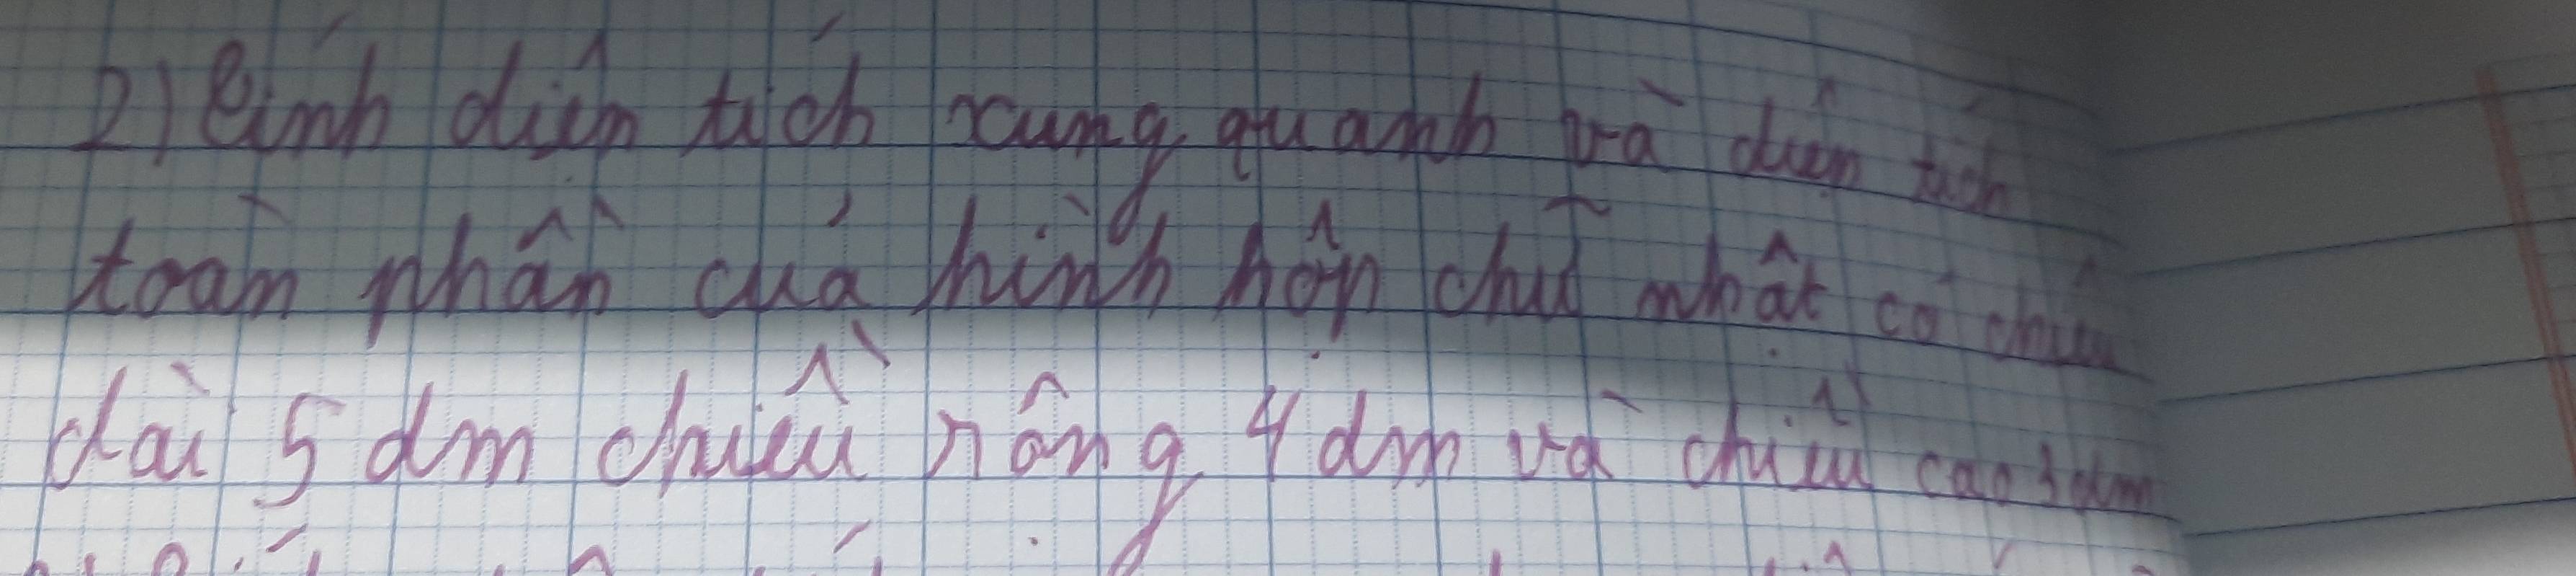 2) Tính diện tích xung quanh và diện tích
toàn phần của hình hộp chữ nhật có chiều
dài 5 dm chiều rộng 4 dm và chiều cao 3 dm